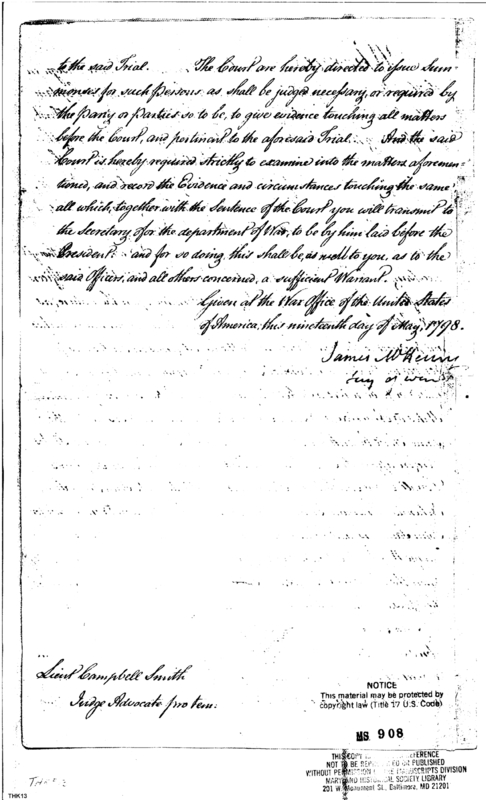 to the said Trial. The Court are hereby directed to issue Sum-
monses for such Persons as shall be judged necessary, or required by
the Party or Parties so to be, to give evidence touching all matters
before the Court, and pertinent to the aforesaid Trial. And the said
Court is hereby required strictly to examine into the matters aforemen-
tioned, and record the Evidence and circumstances touching the same;
all which, together with the Sentence of the Court you will transmit to
the Secretary for the department of War, to be by him laid before the
President. and for so doing, this shall be, as well to you, as to the
said Officers, and all others concerned, a sufficient Warrant.
Given at the War Office of the United States
of America, this nineteenth day of May, 1798.
James McHenry
Secy of War
Lieut Campbell Smith
Judge Advocate pro tem:
NOTICE
This material may be protected by
copyright law (Title 17 U.S. Code)
MS 908
THIS COPY IS REFERENCE
NOT TO BE OR PUBLISHED
WITHOUT PERMISSION MANUSCRIPTS DIVISION
MARYLAND HISTORICAL SOCIETY LIBRARY
201 W. Monument St., Baltimore, MD 21201
THK13